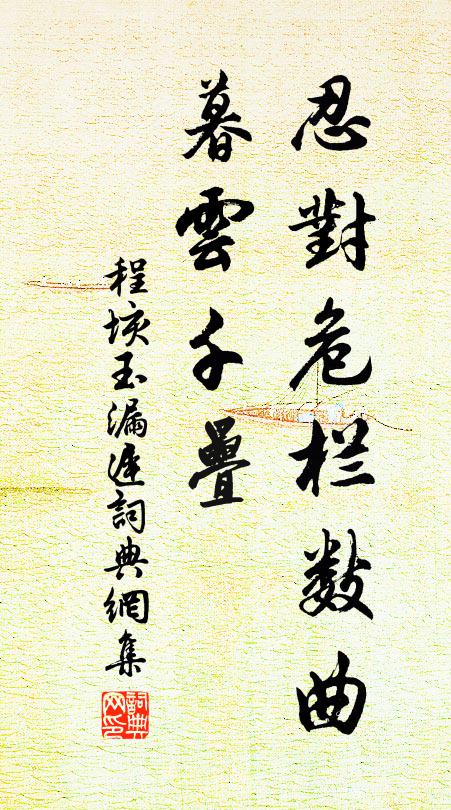 忍對危栏数曲
暮雲千疊
程垓玉漏遲詞典網集
詞典網印